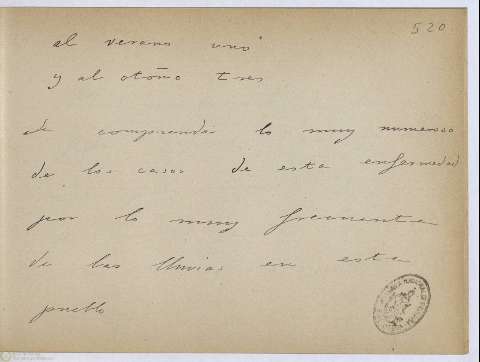 520
al verano uno
y al otoño tres
de comprende lo muy numeroso
de los casos de esta enfermedad
por lo muy frecuente
de las lluvias en esta
pueblo